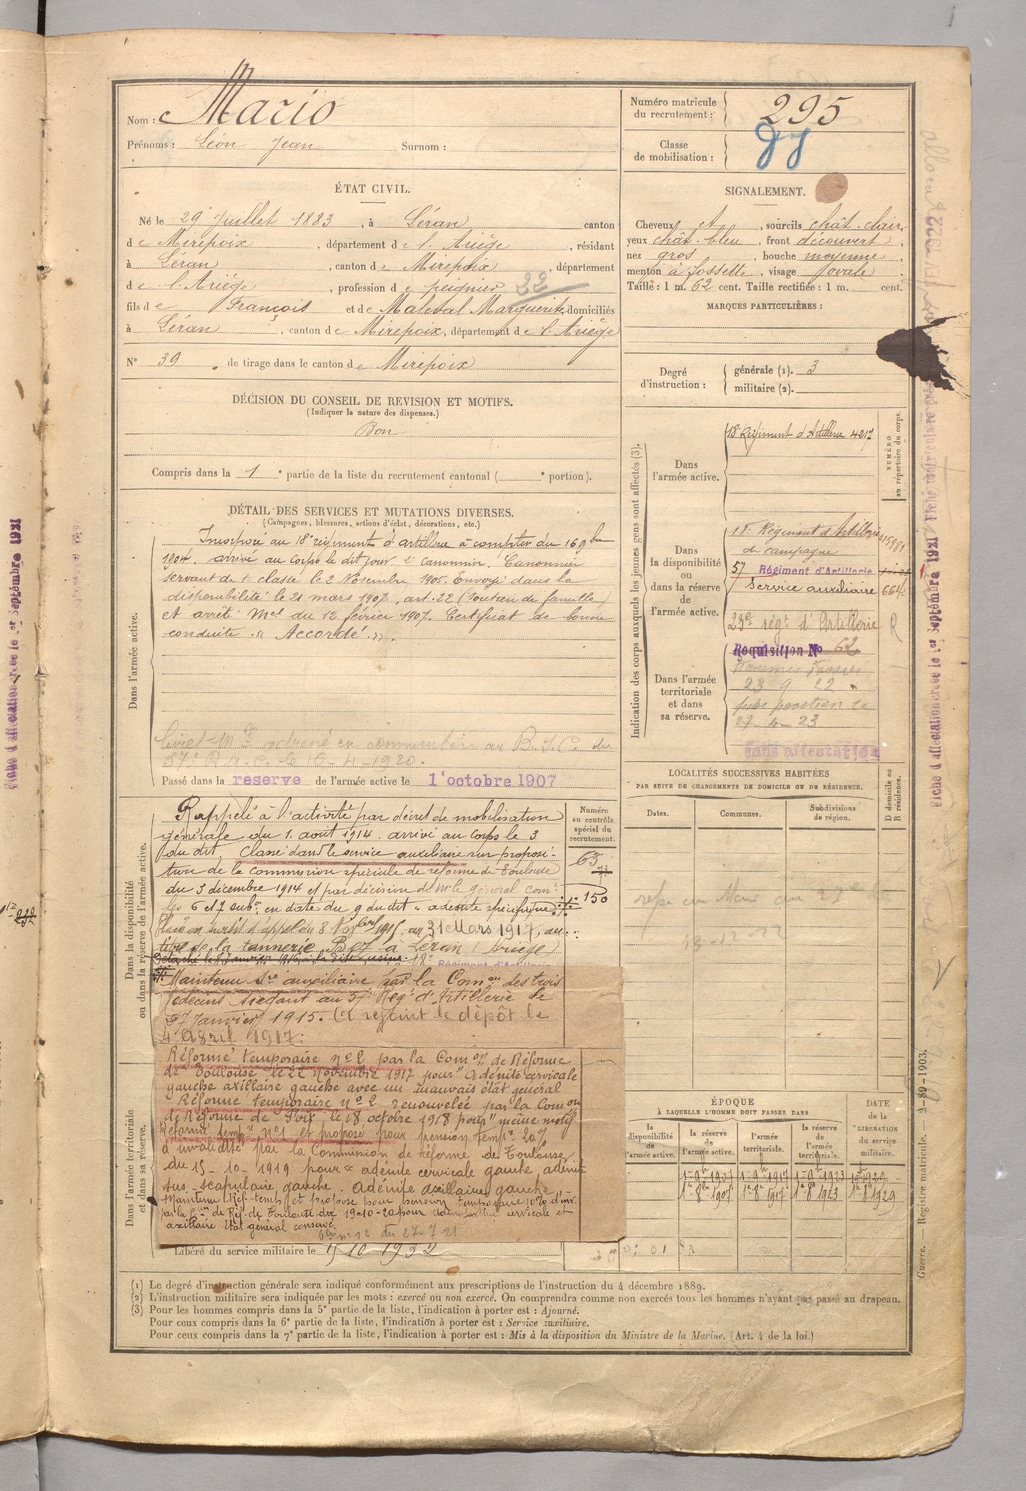 Nom : Mario
Prénoms : Léon Jean Surnom :
Numéro matricule du recrutement : 295
Classe de mobilisation :
ÉTAT CIVIL.
Né le 29 Juillet 1883, à Léran canton
de Mirepoix, département de l'Ariège, résidant
à Léran, canton de Mirepoix, département
de l'Ariège, profession de peignier 22
fils de François et de Maleval Marguerite, domiciliés
à Léran, canton de Mirepoix, département de l'Ariège
N° 39 de tirage dans le canton de Mirepoix
SIGNALEMENT.
Cheveux et, sourcils chât. clair,
yeux chât. bleu, front découvert,
nez gros, bouche moyenne,
menton à fossette, visage ovale,
Taille : 1 m. 62 cent. Taille rectifiée : 1 m. cent.
MARQUES PARTICULIÈRES :
Degré d'instruction :
générale (1). 3
militaire (2).
DÉCISION DU CONSEIL DE REVISION ET MOTIFS.
(Indiquer la nature des dispenses.)
Bon
Compris dans la 1e partie de la liste du recrutement cantonal ( e portion).
DÉTAIL DES SERVICES ET MUTATIONS DIVERSES.
(Campagnes, blessures, actions d'éclat, décorations, etc.)
Dans l'armée active.
Incorporé au 18e régiment d'artillerie à compter du 16 9bre
1904. arrivé au corps le dit jour. 2e canonnier. Canonnier
servant de 1e classe le 2 Novembre 1905. Envoyé dans la
disponibilité le 21 mars 1907, art. 22 (soutien de famille)
et arrêté Mel du 12 février 1907. Certificat de bonne
conduite « Accordé ».
Livret-Mle adressé en communication au B.S.C. du
57e R.A.C. le 16-4-1920.
Passé dans la reserve de l'armée active le 1er octobre 1907
Indication des corps auxquels les jeunes gens sont affectés (3).
NUMÉRO au répertoire du corps.
Dans l'armée active.
18e Régiment d'Artillerie 4217
Dans la disponibilité ou dans la réserve de l'armée active.
18e Régiment d'Artillerie
de campagne
57 Régiment d'Artillerie
Service auxiliaire 664
23e régt d'Artillerie
Dans l'armée territoriale et dans sa réserve.
Requisition N° 62
23 9 22
sans affectation
LOCALITÉS SUCCESSIVES HABITÉES
PAR SUITE DE CHANGEMENTS DE DOMICILE OU DE RÉSIDENCE.
Dates. Communes. Subdivisions de région. D domicile ou R résidence.
Dans la disponibilité ou dans la réserve de l'armée active.
Numéro au contrôle spécial du recrutement.
63
150
Rappelé à l'activité par décret de mobilisation
générale du 1. août 1914. arrivé au corps le 3
du dit. Classé dans le service auxiliaire sur proposi-
tion de la commission spéciale de réforme de Toulouse
du 3 décembre 1914 et par décision de Mr le général comt
les 6 et 7 subons en date du 9 du dit « adénite spécifique »
Placé en sursis d'appel du 8 Novbre 1915 au 31 Mars 1917, au
titre de la tannerie Bez à Léran (Ariège)
Maintenu Sce auxiliaire par la Comon des trois
Médecins siégeant au 57 Régt d'Artillerie le
27 Janvier 1915. A rejoint le dépôt le
4 Avril 1917.
Réformé temporaire n° 2 par la Comon de Réforme
de Toulouse le 22 novembre 1917 pour "adénite cervicale
gauche axillaire gauche avec un mauvais état général
Réforme temporaire n° 2 renouvelée par la Comon
de Réforme de Foix le 18 octobre 1918 pour même motif
Réformé tempre n° 1 et proposé pour pension tempre 20%
d'invalidité par la Commission de Réforme de Toulouse
du 15-10-1919 pour « adénite cervicale gauche, adénite
sus-scapulaire gauche. adénite axillaire gauche
Maintenu Réf. temp. et proposé pour pension temporaire 10% d'inv.
par la Con de Réf. de Toulouse du 19-10-20 pour adénite cervicale et
axillaire. état général conservé.
du 27-7-21
Dans l'armée territoriale et dans sa réserve.
Libéré du service militaire le 15 10 1932
ÉPOQUE
À LAQUELLE L'HOMME DOIT PASSER DANS
la disponibilité de l'armée active.
la réserve de l'armée active.
l'armée territoriale.
la réserve de l'armée territoriale.
DATE de la LIBÉRATION du service militaire.
1er 8bre 1907 1er 8bre 1917 1er 8bre 1923 1er 8bre 1929
(1) Le degré d'instruction générale sera indiqué conformément aux prescriptions de l'instruction du 4 décembre 1889.
(2) L'instruction militaire sera indiquée par les mots : exercé ou non exercé. On comprendra comme non exercés tous les hommes n'ayant pas passé au drapeau.
(3) Pour les hommes compris dans la 5e partie de la liste, l'indication à porter est : Ajourné.
Pour ceux compris dans la 6e partie de la liste, l'indication à porter est : Service auxiliaire.
Pour ceux compris dans la 7e partie de la liste, l'indication à porter est : Mis à la disposition du Ministre de la Marine. (Art. 4 de la loi.)
Guerre. — Registre matricule.
Fiche d'affectation créée le 1er Septembre 1921
Fiche d'affectation créée le 1er Septembre 1921